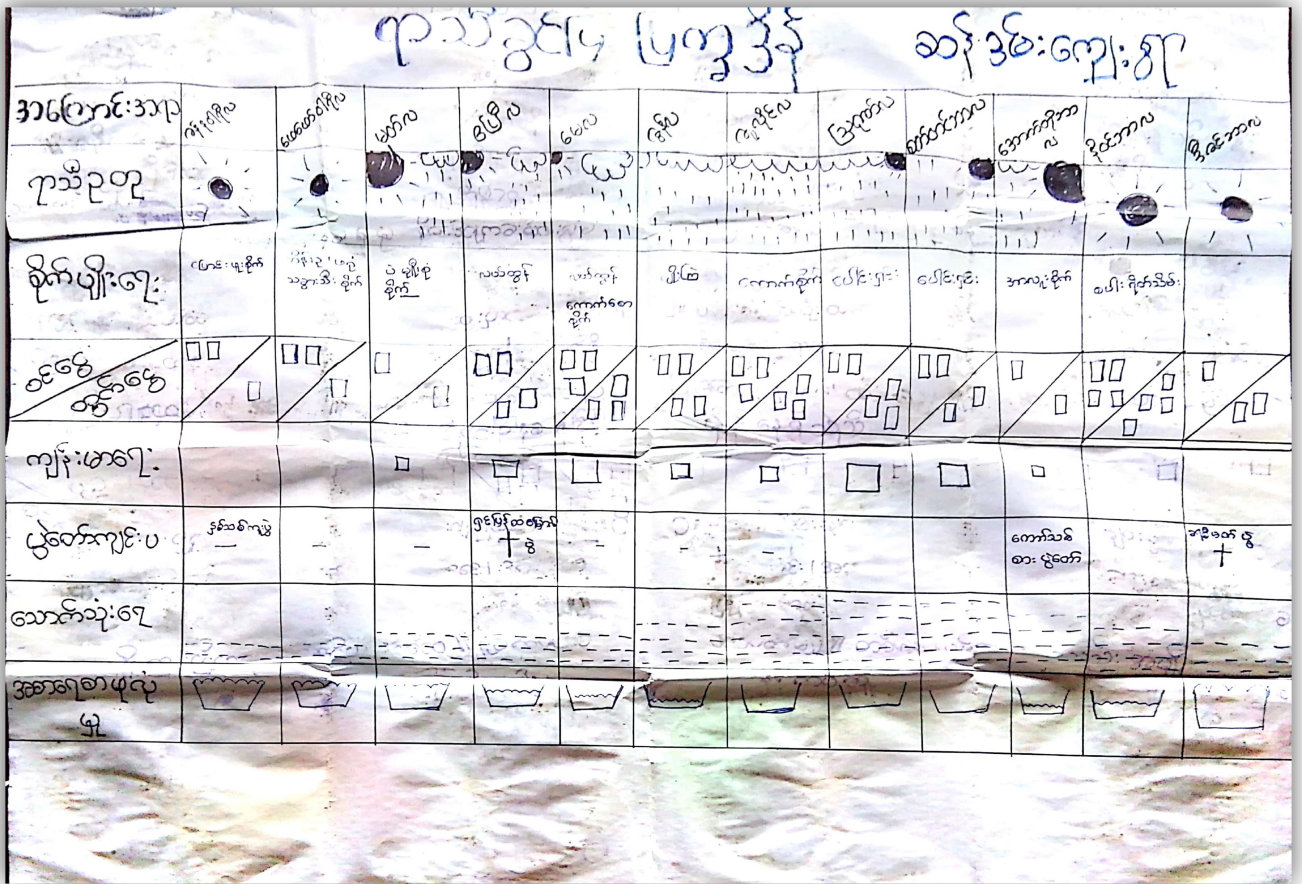 ရာသီခွင်ပြ ပြက္ခဒိန် ဆန်ဒုမ်းကျေးရွာ
အကြောင်းအရာ ဇန်နဝါရီလ ဖေဖော်ဝါရီလ မတ်လ ဧပြီလ မေလ ဇွန်လ ဇူလိုင်လ ဩဂုတ်လ စက်တင်ဘာလ အောက်တိုဘာလ နိုဝင်ဘာလ ဒီဇင်ဘာလ
ရာသီဥတု
စိုက်ပျိုးရေး
ပြောင်းဖူးစိုက်
သခွားသီးစိုက်
ပဲမျိုးစုံ
စိုက်
လယ်ထွန်
လယ်ထွန်
ကောက်စော
စိုက်
ပျိုးကြဲ
ကောက်စိုက်
ပေါင်းရှင်း
ပေါင်းရှင်း
အာလူးစိုက်
စပါးရိတ်သိမ်း
ဝင်ငွေ
ထွက်ငွေ
ကျန်းမာရေး
ပွဲတော်ကျင်းပ
နှစ်သစ်ကူးပွဲ
ရှင်ပြန်ထမြောက်
ပွဲ
ကောက်သစ်
စားပွဲတော်
ခရစ္စမတ်ပွဲ
သောက်သုံးရေ
အစားရေစာဖူလုံ
မှု